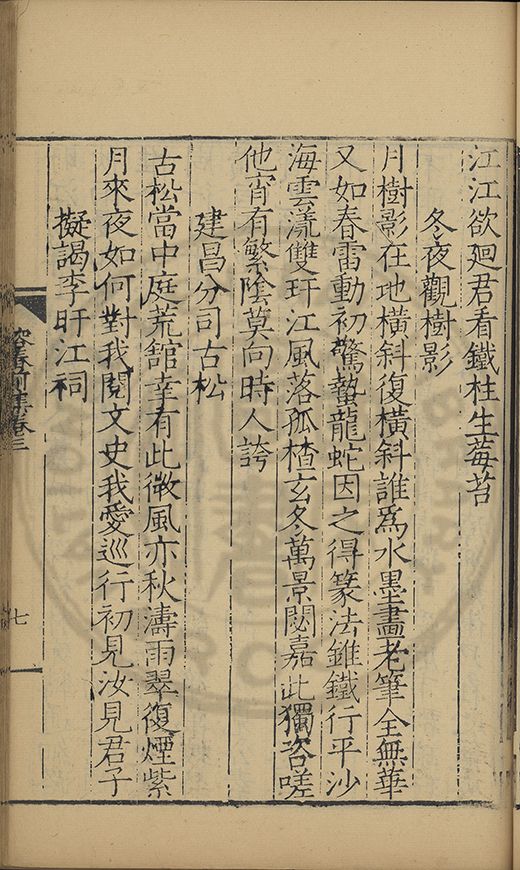 江江欲廻君看鐵柱生莓苔
冬夜觀樹影
月樹影在地橫斜復橫斜誰爲水墨畫老筆全無華
又如春雷動初驚蟄龍蛇因之得篆法錐鐵行平沙
海雲漾雙玕江風落孤楂玄冬萬景閟嘉此獨咨嗟
他宵有繁陰莫向時人誇
建昌分司古松
古松當中庭荒舘幸有此微風亦秋濤雨翠復煙紫
月來夜如何對我閱文史我愛巡行初見汝見君子
擬謁李旴江祠
容春前集卷三
七